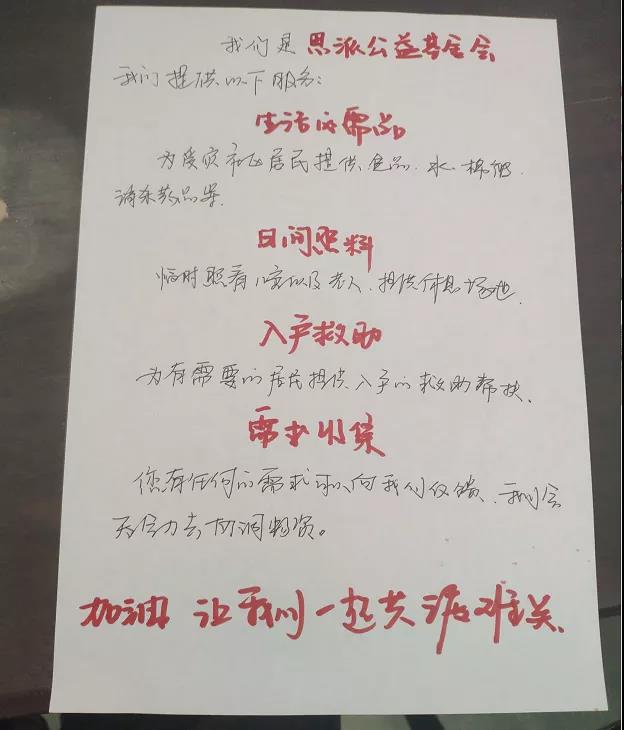 我们是 思派公益基金会
我们提供以下服务：
生活必需品
为受灾社区居民提供食品、水、棉被、
消杀药品等.
日间照料
临时照看儿童以及老人、提供休息场地.
入户救助
为有需要的居民提供入户的救助帮扶、
需求收集
您有任何的需求可以向我们反馈、我们会
尽全力去协调物资。
加油 让我们一起共渡难关、